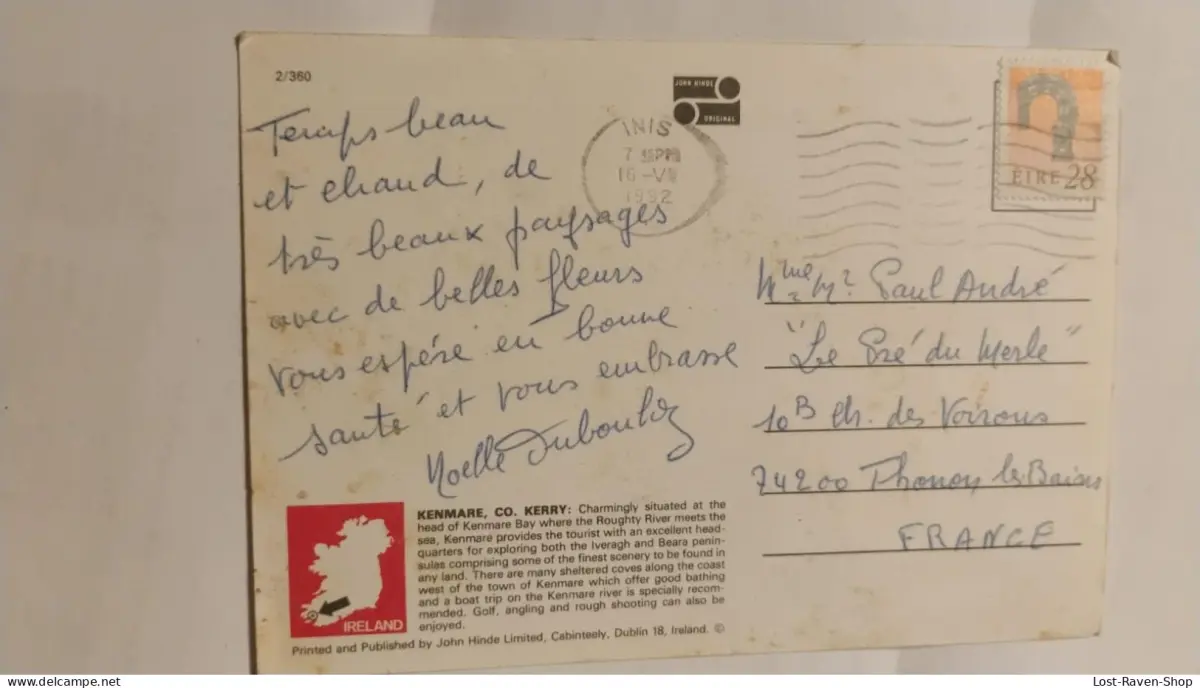 2/360
JOHN HINDE
ORIGINAL
INIS
7
16-VII
1992
ÉIRE 28
Temps beau
et chaud, de
très beaux paysages
avec de belles fleurs
Vous espère en bonne
santé et vous embrasse
Noelle
Mme Mr Paul André
"Le Pré du Merle"
10B ch. des Voirons
74200 Thonon les Bains
FRANCE
KENMARE, CO. KERRY: Charmingly situated at the
head of Kenmare Bay where the Roughty River meets the
sea, Kenmare provides the tourist with an excellent head-
quarters for exploring both the Iveragh and Beara penin-
sulas comprising some of the finest scenery to be found in
any land. There are many sheltered coves along the coast
west of the town of Kenmare which offer good bathing
and a boat trip on the Kenmare river is specially recom-
mended. Golf, angling and rough shooting can also be
enjoyed.
IRELAND
Printed and Published by John Hinde Limited, Cabinteely, Dublin 18, Ireland. ©
Lost-Raven-Shop